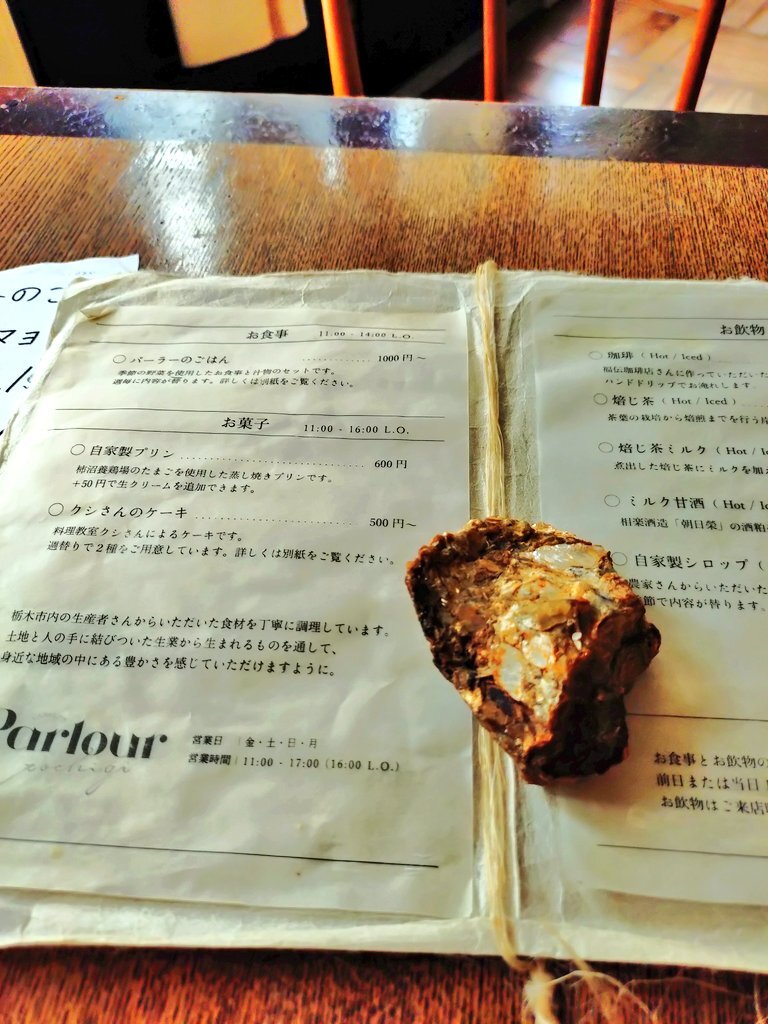 お食事 11:00 - 14:00 L.O.
〇 パーラーのごはん .................. 1000円〜
季節の野菜を使用したお食事と汁物のセットです。
週毎に内容が替ります。詳しくは別紙をご覧ください。
お菓子 11:00 - 16:00 L.O.
〇 自家製プリン .................................... 600円
柿沼養鶏場のたまごを使用した蒸し焼きプリンです。
+50円で生クリームを追加できます。
〇 クシさんのケーキ .................................... 500円〜
料理教室クシさんによるケーキです。
週替りで2種をご用意しています。詳しくは別紙をご覧ください。
栃木市内の生産者さんからいただいた食材を丁寧に調理しています。
土地と人の手に結びついた生業から生まれるものを通して、
身近な地域の中にある豊かさを感じていただけますように。
Parlour
tochigi
営業日 | 金・土・日・月
営業時間 | 11:00 - 17:00 (16:00 L.O.)
お飲物
〇 珈琲 ( Hot / Iced )
福伝珈琲店さんに作っていただいた
ハンドドリップでお淹れします。
〇 焙じ茶 ( Hot / Iced )
茶葉の栽培から焙煎までを行う
〇 焙じ茶ミルク ( Hot / Ic
煮出した焙じ茶にミルクを加え
〇 ミルク甘酒 ( Hot / Ic
相楽酒造「朝日榮」の酒粕
〇 自家製シロップ (
農家さんからいただいた
節で内容が替ります。
お食事とお飲物の
前日または当日
お飲物はご来店